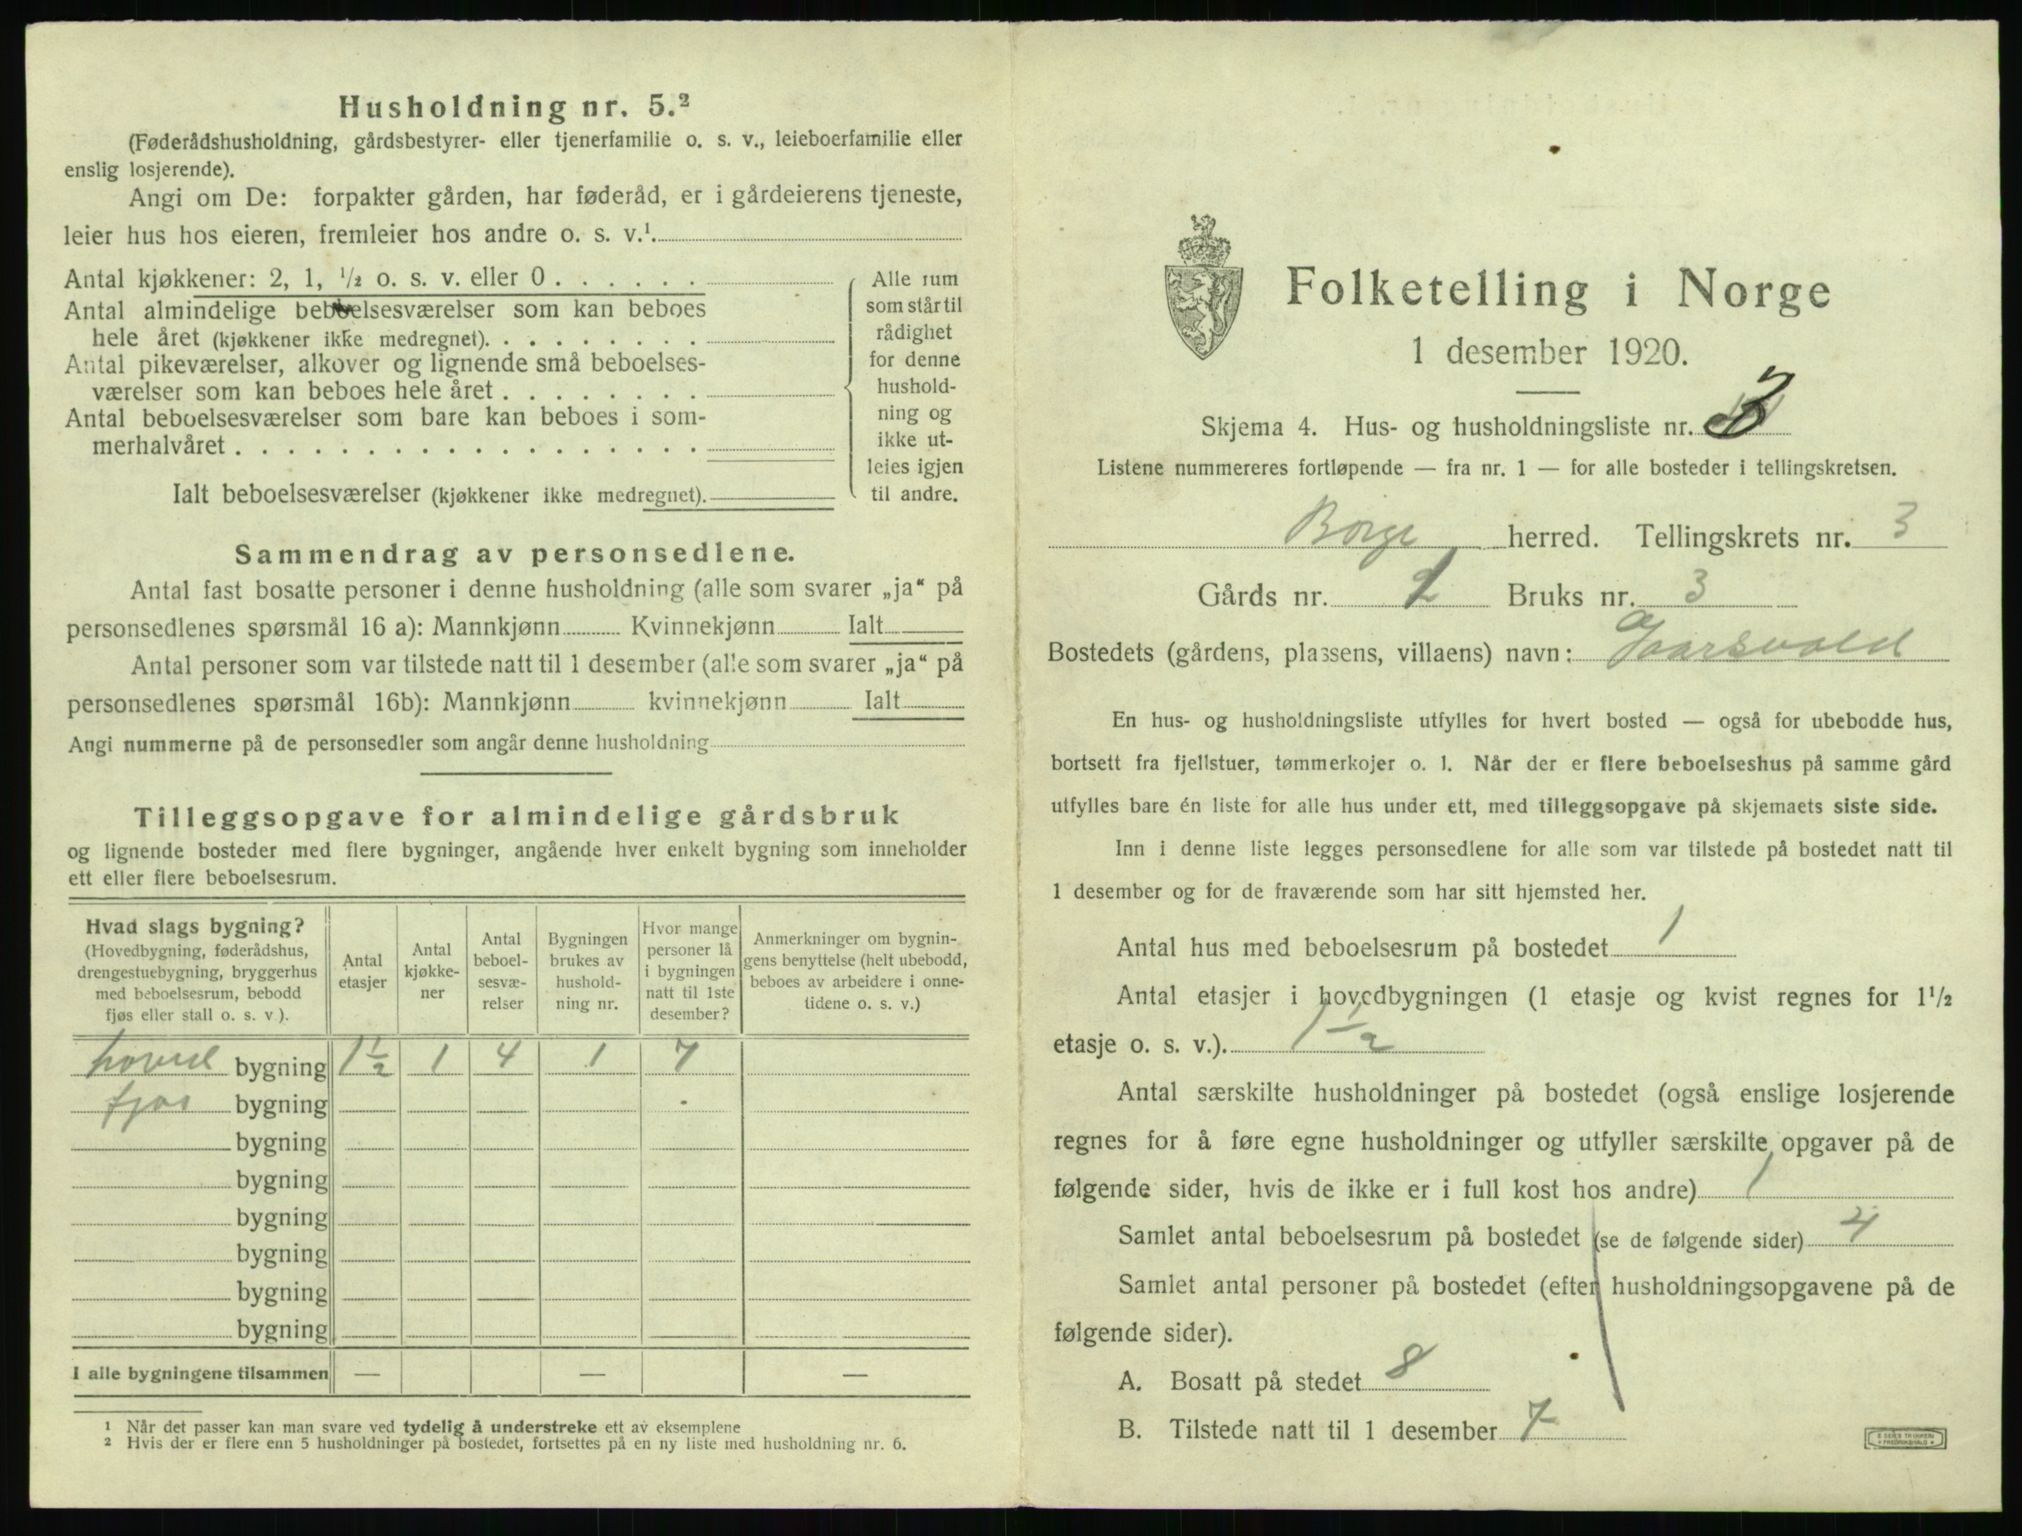 Husholdning nr. 5.²
(Føderådshusholdning, gårdsbestyrer- eller tjenerfamilie o. s. v., leieboerfamilie eller
enslig losjerende).
Angi om De: forpakter gården, har føderåd, er i gårdeierens tjeneste,
leier hus hos eieren, fremleier hos andre o. s. v.¹
Antal kjøkkener: 2, 1, ½ o. s. v. eller 0 . . . . . .
Antal almindelige beboelsesværelser som kan beboes
hele året (kjøkkener ikke medregnet). . . . . . . . .
Antal pikeværelser, alkover og lignende små beboelses-
værelser som kan beboes hele året . . . . . . . .
Antal beboelsesværelser som bare kan beboes i som-
merhalvåret . . . . . . . . . . . . . . . . . .
Ialt beboelsesværelser (kjøkkener ikke medregnet).
Alle rum
som står til
rådighet
for denne
hushold-
ning og
ikke ut-
leies igjen
til andre.
Sammendrag av personsedlene.
Antal fast bosatte personer i denne husholdning (alle som svarer „ja“ på
personsedlenes spørsmål 16 a): Mannkjønn Kvinnekjønn Ialt
Antal personer som var tilstede natt til 1 desember (alle som svarer „ja“ på
personsedlenes spørsmål 16b): Mannkjønn kvinnekjønn Ialt
Angi nummerne på de personsedler som angår denne husholdning
Tilleggsopgave for almindelige gårdsbruk
og lignende bosteder med flere bygninger, angående hver enkelt bygning som inneholder
ett eller flere beboelsesrum.
Hvad slags bygning?
(Hovedbygning, føderådshus,
drengestuebygning, bryggerhus
med beboelsesrum, bebodd
fjøs eller stall o. s. v.).
Antal
etasjer
Antal
kjøkke-
ner
Antal
beboel-
sesvæ-
relser
Bygningen
brukes av
hushold-
ning nr.
Hvor mange
personer lå
i bygningen
natt til 1ste
desember?
Anmerkninger om bygnin-
gens benyttelse (helt ubebodd,
beboes av arbeidere i onne-
tidene o. s. v.)
hoved bygning 1½ 1 4 1 7
fjøs bygning -
bygning
bygning
bygning
bygning
bygning
bygning
I alle bygningene tilsammen — — —
¹ Når det passer kan man svare ved tydelig å understreke ett av eksemplene
² Hvis der er flere enn 5 husholdninger på bostedet, fortsettes på en ny liste med husholdning nr. 6.
Folketelling i Norge
1 desember 1920.
Skjema 4. Hus- og husholdningsliste nr.
Listene nummereres fortløpende — fra nr. 1 — for alle bosteder i tellingskretsen.
Borge herred. Tellingskrets nr. 3
Gårds nr. Bruks nr. 3
Bostedets (gårdens, plassens, villaens) navn: Gaarsvold
En hus- og husholdningsliste utfylles for hvert bosted — også for ubebodde hus,
bortsett fra fjellstuer, tømmerkojer o. l. Når der er flere beboelseshus på samme gård
utfylles bare én liste for alle hus under ett, med tilleggsopgave på skjemaets siste side.
Inn i denne liste legges personsedlene for alle som var tilstede på bostedet natt til
1 desember og for de fraværende som har sitt hjemsted her.
Antal hus med beboelsesrum på bostedet 1
Antal etasjer i hovedbygningen (1 etasje og kvist regnes for 1½
etasje o. s. v.). 1½
Antal særskilte husholdninger på bostedet (også enslige losjerende
regnes for å føre egne husholdninger og utfyller særskilte opgaver på de
følgende sider, hvis de ikke er i full kost hos andre) 1
Samlet antal beboelsesrum på bostedet (se de følgende sider) 4
Samlet antal personer på bostedet (efter husholdningsopgavene på de
følgende sider).
A. Bosatt på stedet 8
B. Tilstede natt til 1 desember 7